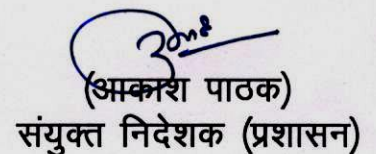 (आकाश पाठक)
संयुक्त निदेशक (प्रशासन)